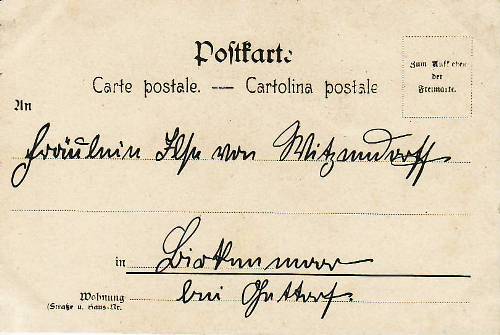 Postkarte
Carte postale. — Cartolina postale
Zum Aufkleben
der
Freimarke.
An
Fräulein Ilse von Witzendorff
in Birkenmoor
bei Gettorf.
Wohnung
(Straße u. Haus-Nr.